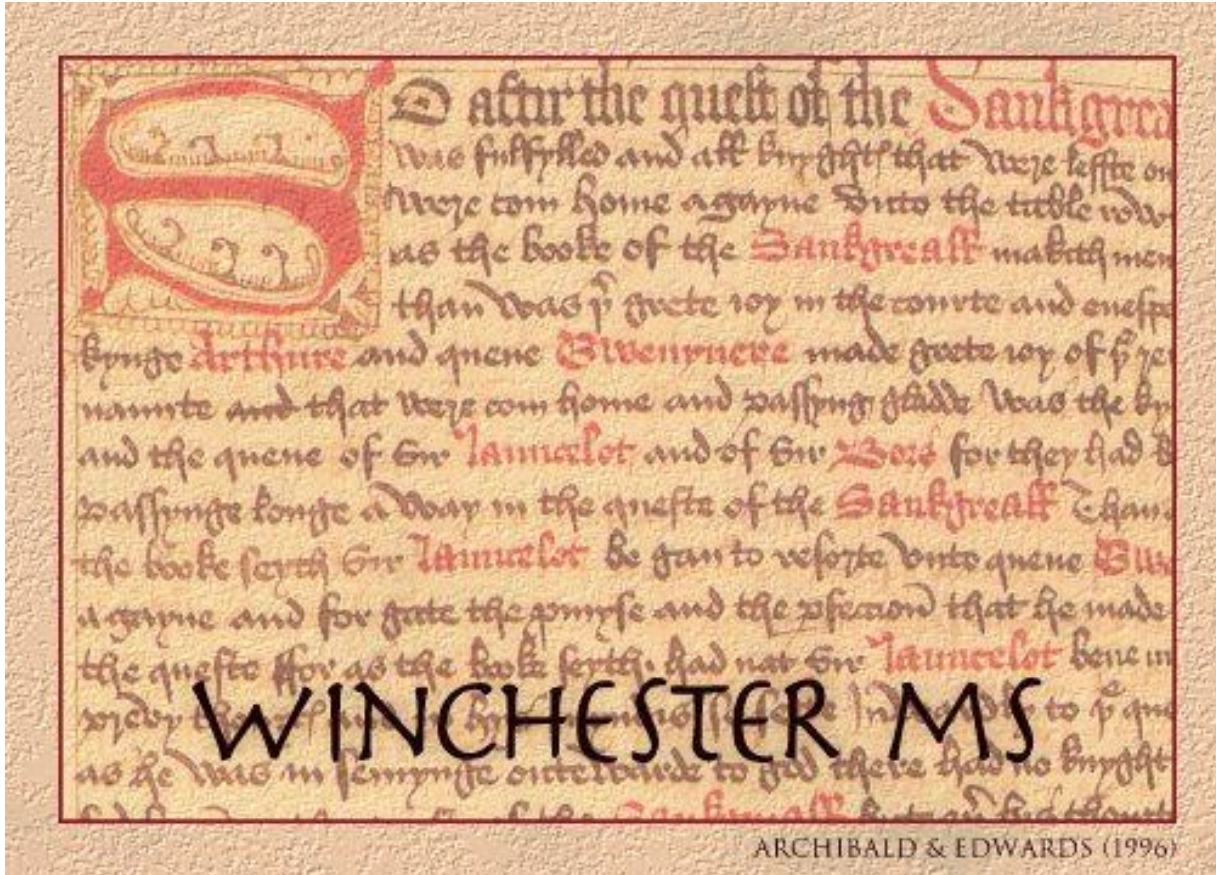 SO aftir the quest of the Sankgrea
was fulfylled and all knyghtes that were leffte on
were com home agayne vnto the table row
as the booke of the Sankgreall makith men
than was þe grete ioy in the courte and enespe
kynge Arthure and quene Gwenyuere made grete ioy of þe re
naunte and that were com home and passyng gladde was the ky
and the quene of sir launcelot and of sir Bors for they had b
passynge longe a way in the queste of the Sankgreall Than
the booke seyth sir launcelot be gan to resorte vnto quene Gwe
agayne and for gate the pmyse and the pfeccion that he made
the queste ffor as the booke seyth had nat sir launcelot bene in
to þe que
as he was in semynge outewarde to god there had no knyght
Sankgreall
WINCHESTER MS
ARCHIBALD & EDWARDS (1996)